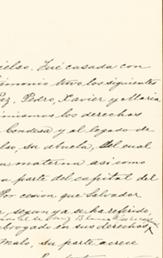 celso. Fué casada con
imonio tuvo los siguientes
Paz, Pedro, Xavier y Maria
mismos los derechos
Condesa y al legado de
las, su abuela, del cual
a materna así como
a parte del capital del
Por cesion que Salvador
segun ya se ha referido,
abogado en sus derechos,
Malo, su parte acrece